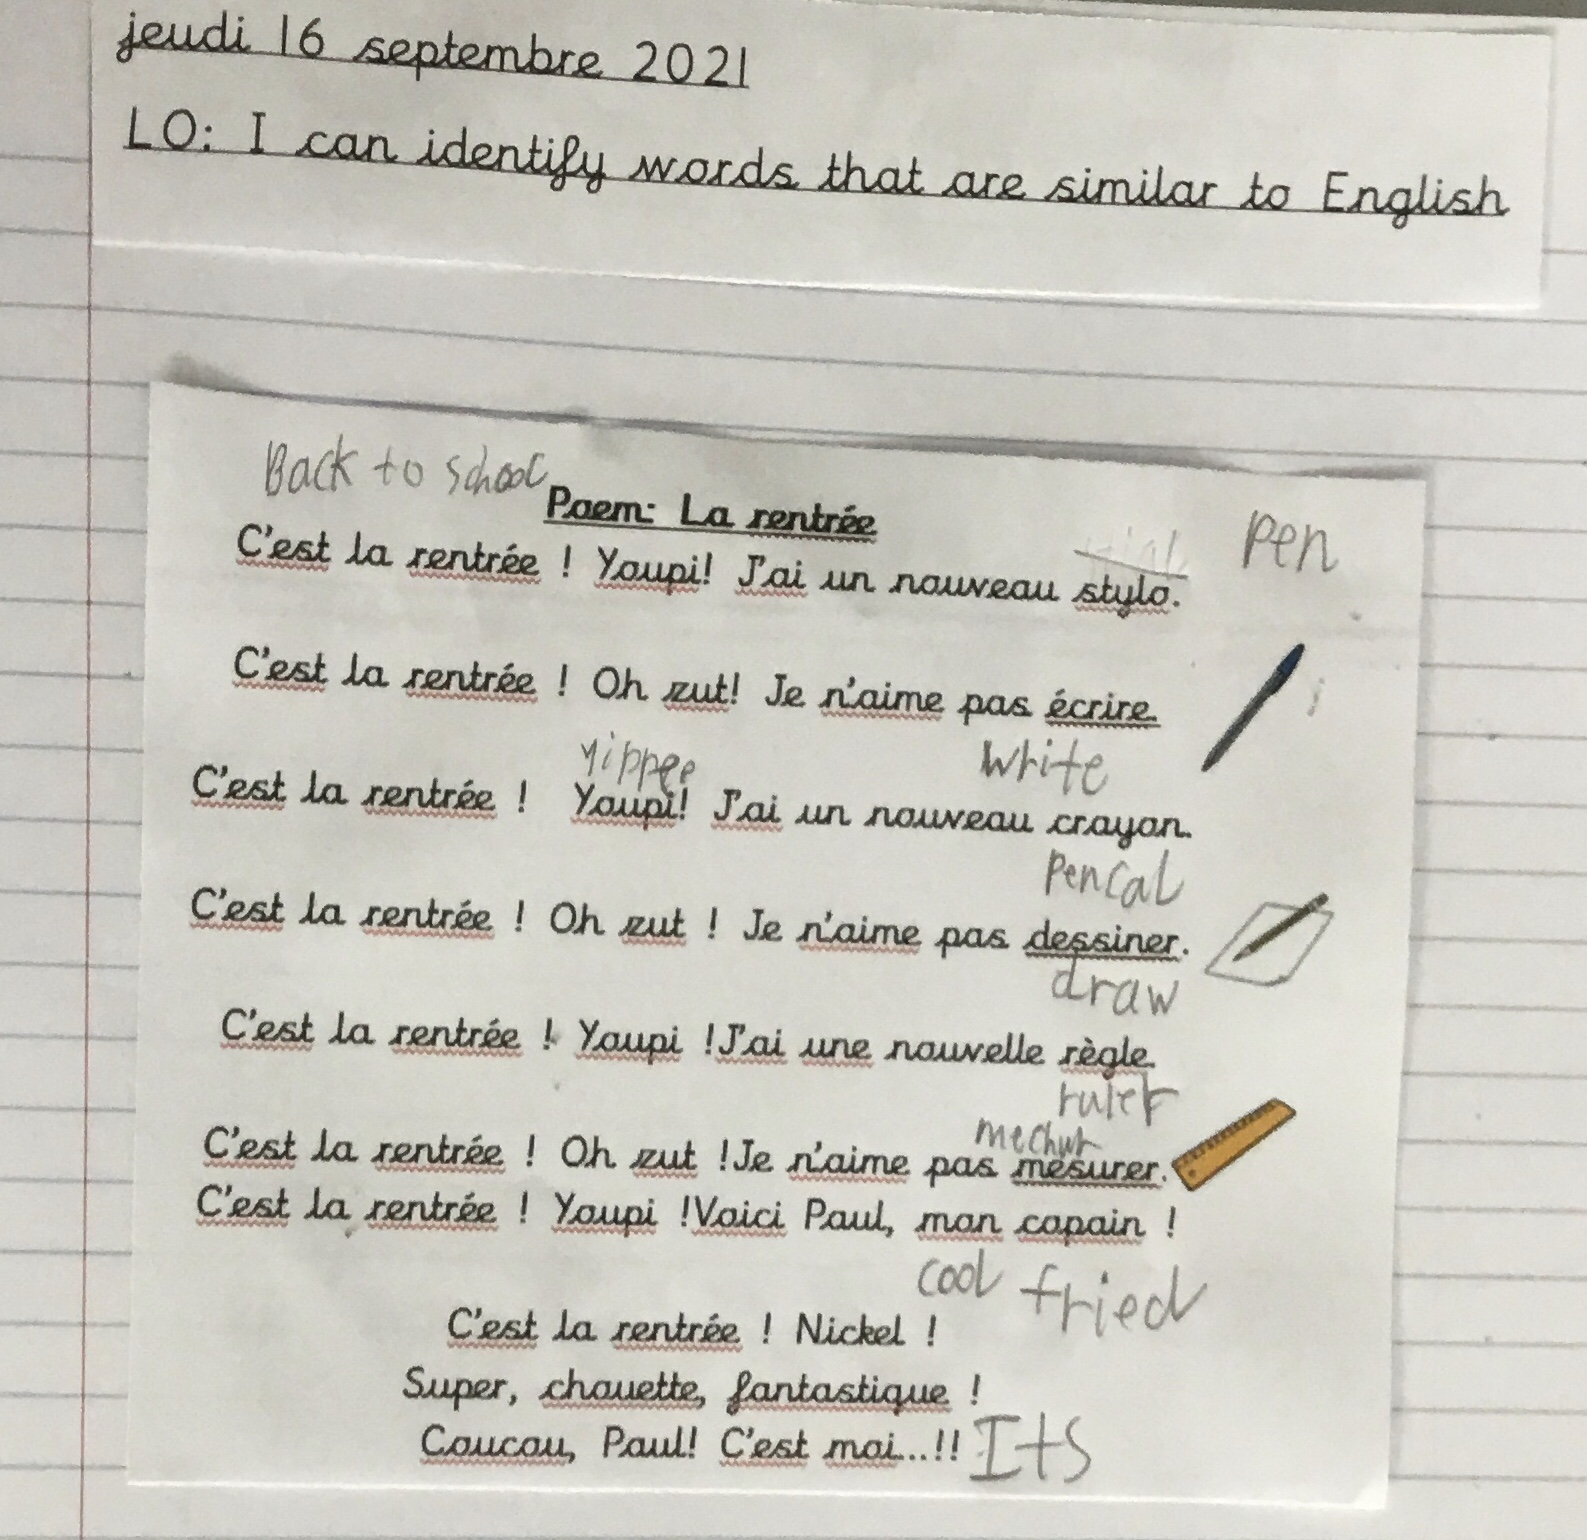 jeudi 16 septembre 2021
LO: I can identify words that are similar to English
Back to school
Poem: La rentrée
pen
C'est la rentrée ! Youpi! J'ai un nouveau stylo.
C'est la rentrée ! Oh zut! Je n'aime pas écrire.
yippee write
C'est la rentrée ! Youpi! J'ai un nouveau crayon.
Pencal
C'est la rentrée ! Oh zut ! Je n'aime pas dessiner.
draw
C'est la rentrée ! Youpi !J'ai une nouvelle règle.
ruler
mechur
C'est la rentrée ! Oh zut !Je n'aime pas mesurer.
C'est la rentrée ! Youpi !Voici Paul, mon copain !
cool fried
C'est la rentrée ! Nickel !
Super, chouette, fantastique !
Coucou, Paul! C'est moi...!! Its